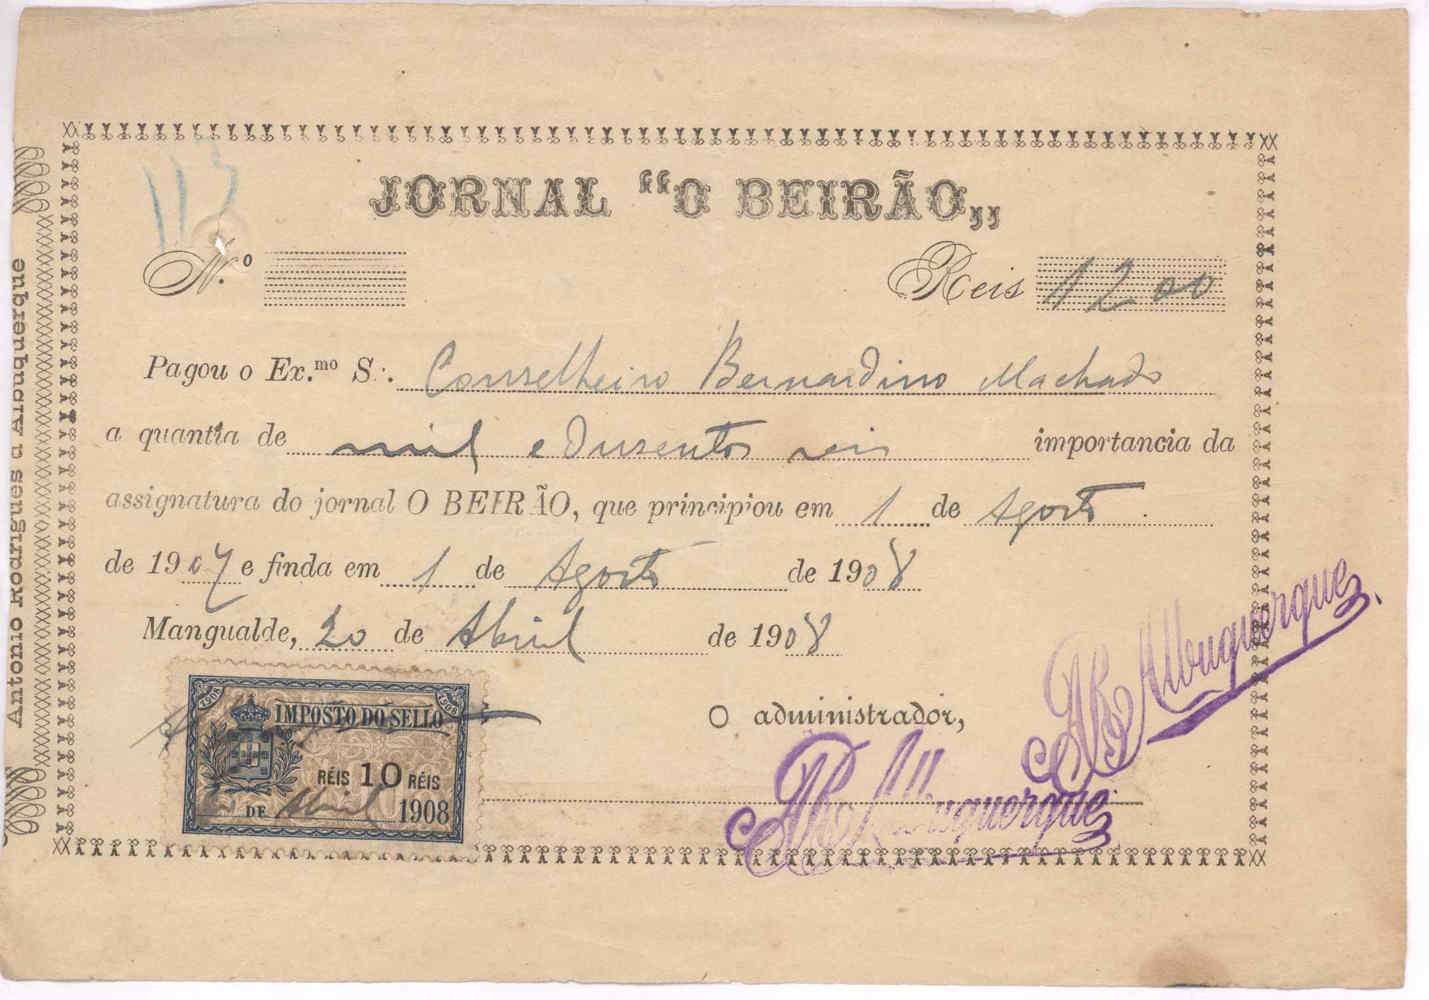 113
JORNAL "O BEIRÃO„
N.º
Reis 1200
Pagou o Ex.mo S.r. Conselheiro Bernardino Machado
a quantia de mil e dusentos reis importancia da
assignatura do jornal O BEIRÃO, que principiou em 1 de Agosto
de 1907 e finda em 1 de Agosto de 1908
Mangualde, 20 de Abril de 1908
O administrador,
ARAlbuquerque
ARAlbuquerque
1908
1908
IMPOSTO DO SELLO
RÉIS 10 RÉIS
DE Abril 1908
Antonio Rodrigues d'Albuquerque